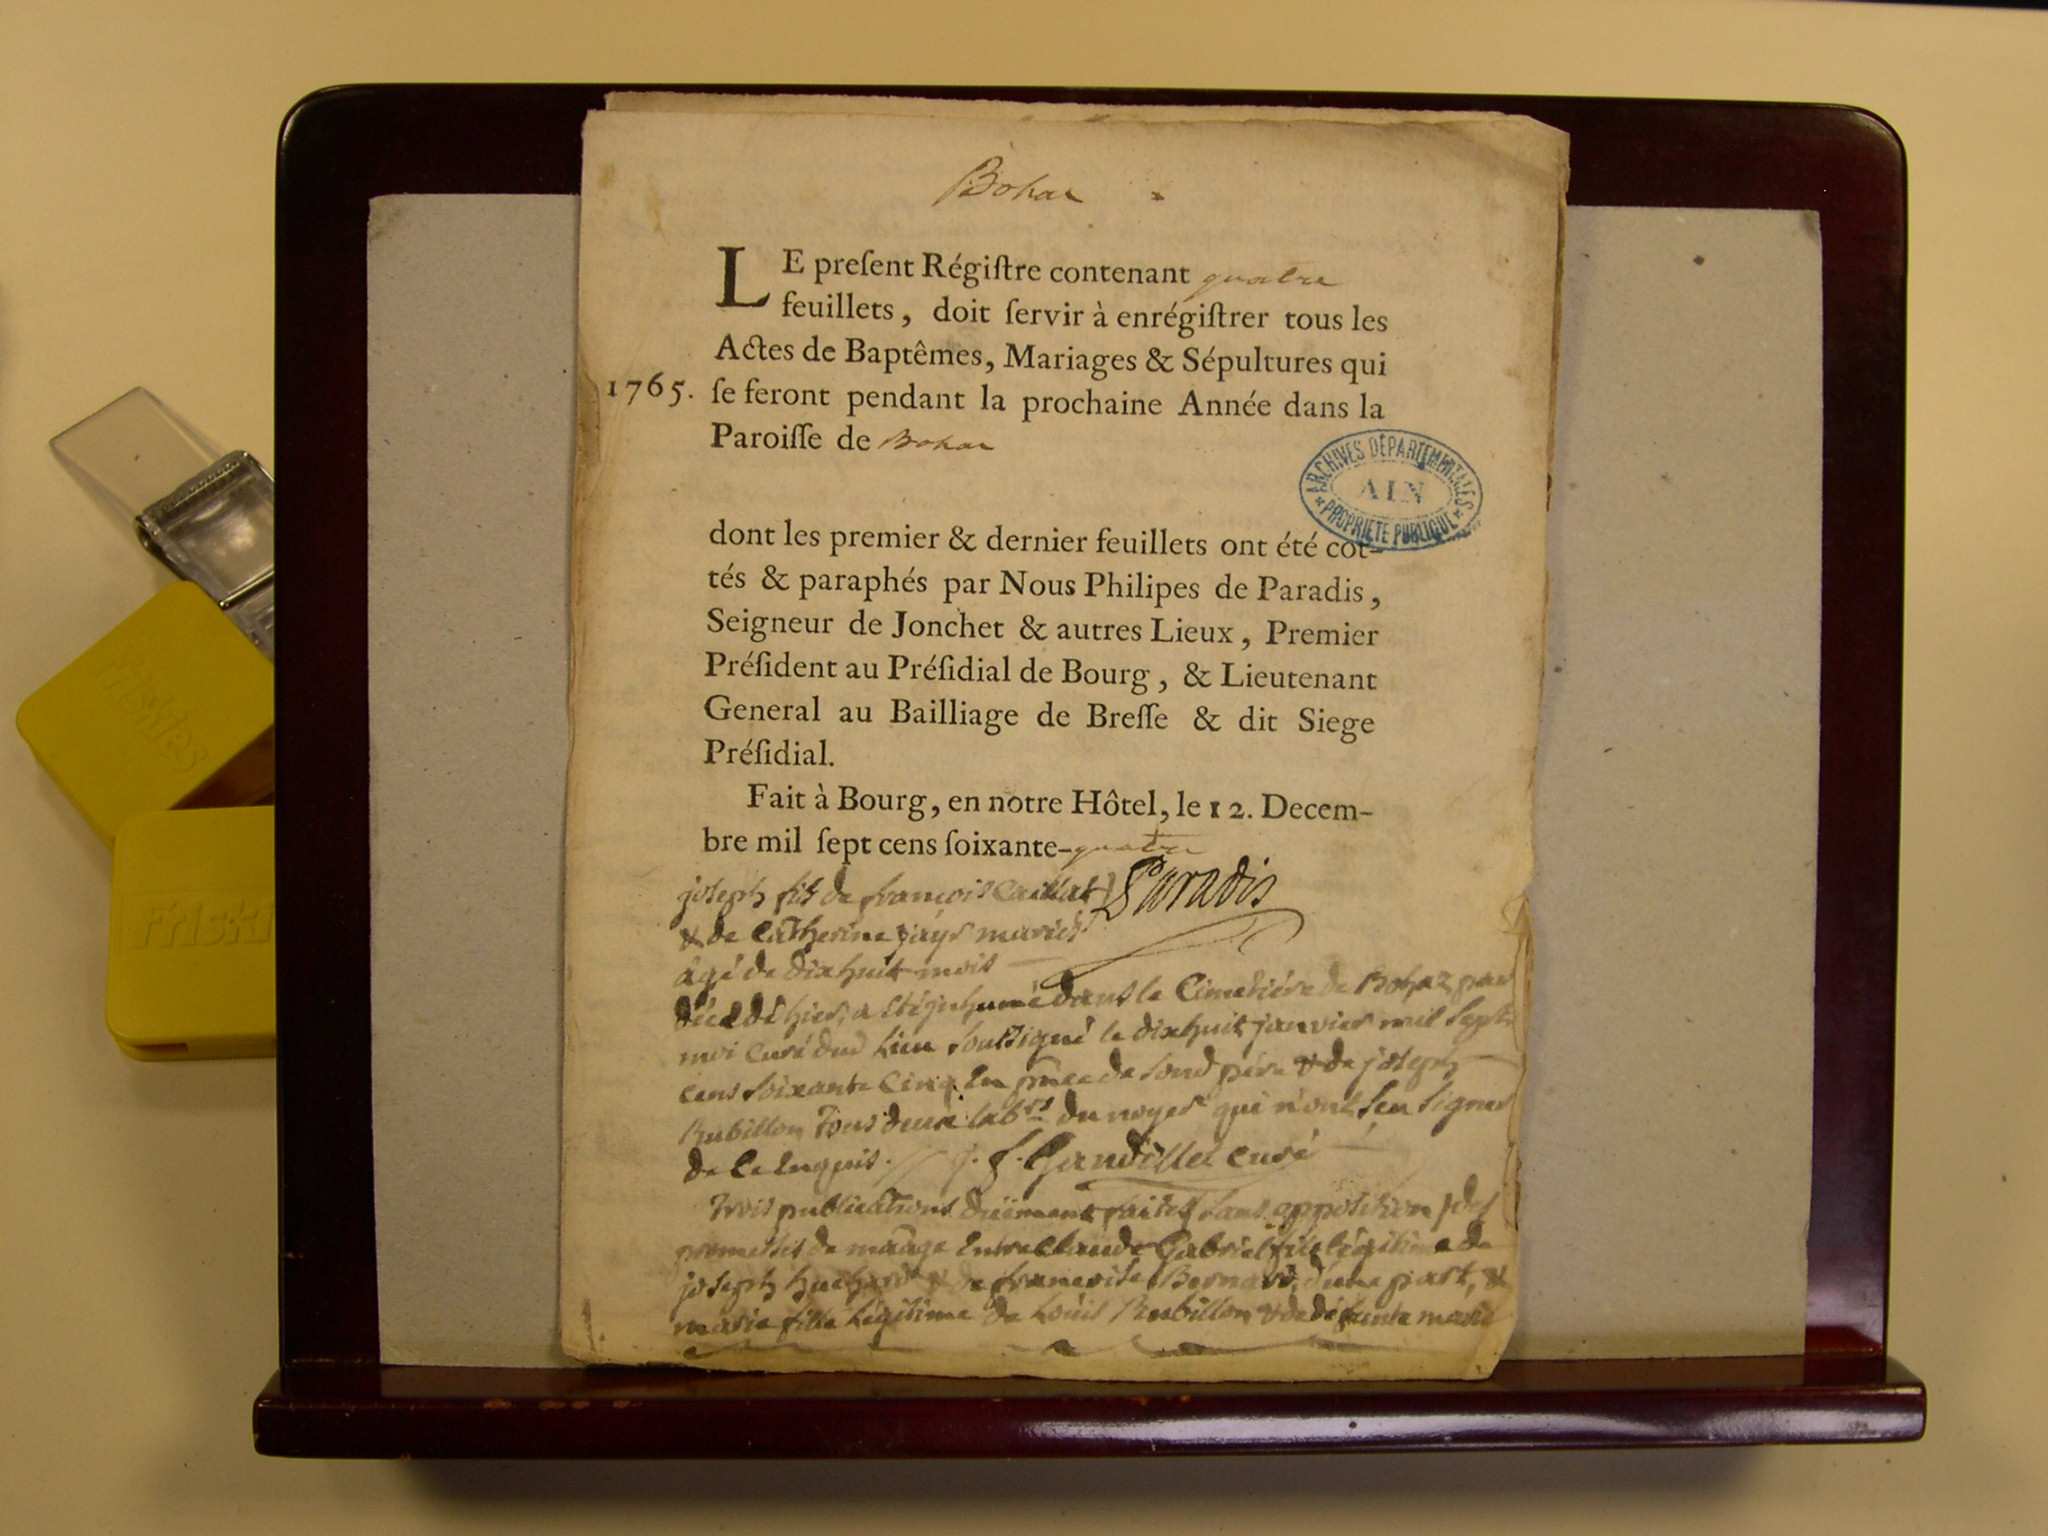 Bohar
LE preſent Régiſtre contenant quatre
feuillets, doit ſervir à enrégiſtrer tous les
Actes de Baptêmes, Mariages & Sépultures qui
1765. ſe feront pendant la prochaine Année dans la
Paroiſſe de Bohar
ARCHIVES DÉPARTEMENTALES
AIN
* PROPRIÉTÉ PUBLIQUE *
dont les premier & dernier feuillets ont été cot-
tés & paraphés par Nous Philipes de Paradis,
Seigneur de Jonchet & autres Lieux, Premier
Préſident au Préſidial de Bourg, & Lieutenant
General au Bailliage de Breſſe & dit Siege
Préſidial.
Fait à Bourg, en notre Hôtel, le 12. Decem-
bre mil ſept cens ſoixante-quatre
Paradis
joseph fils de françois Caillat
& de Catherine jayr mariés
âgé de dixhuit mois
décédé hier, a été inhumé dans le Cimetière de Bohaz par
moi curé dud lieu soussigné le dixhuit janvier mil sept
cens soixante cinq En pñce de sond père & de joseph
Rubillon Tous deux labrs du noyer qui n'ont seu signer
de ce Enquis. j. f. Gandillet curé
Trois publications düement faites sans opposition, des
promesses de mãage Entre Claude Gabriel fils légitime de
joseph & de francoise Bernard, d'une part, &
marie fille légitime de Loüis Rubillon & de défunte marie
Friskies
Friski